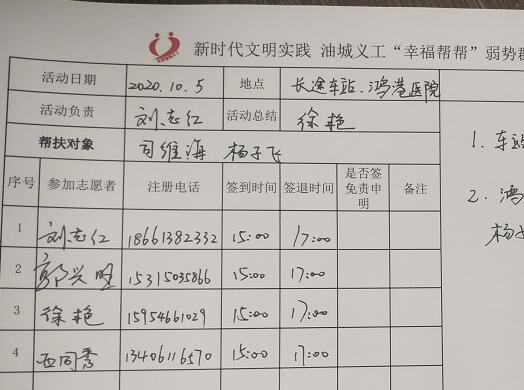 新时代文明实践 油城义工“幸福帮帮”弱势群
活动日期 2020.10.5 地点 长途车站、鸿港医院
活动负责 刘志红 活动总结 徐艳
帮扶对象 司维海 杨子飞
1. 车站
序号 参加志愿者 注册电话 签到时间 签退时间 是否签免责申明 备注
2. 鸿
杨子
1 刘志红 18661382332 15:00 17:00
2 郭兴明 15315035866 15:00 17:00
3 徐艳 15954661029 15:00 17:00
4 同秀 13406116570 15:00 17:00